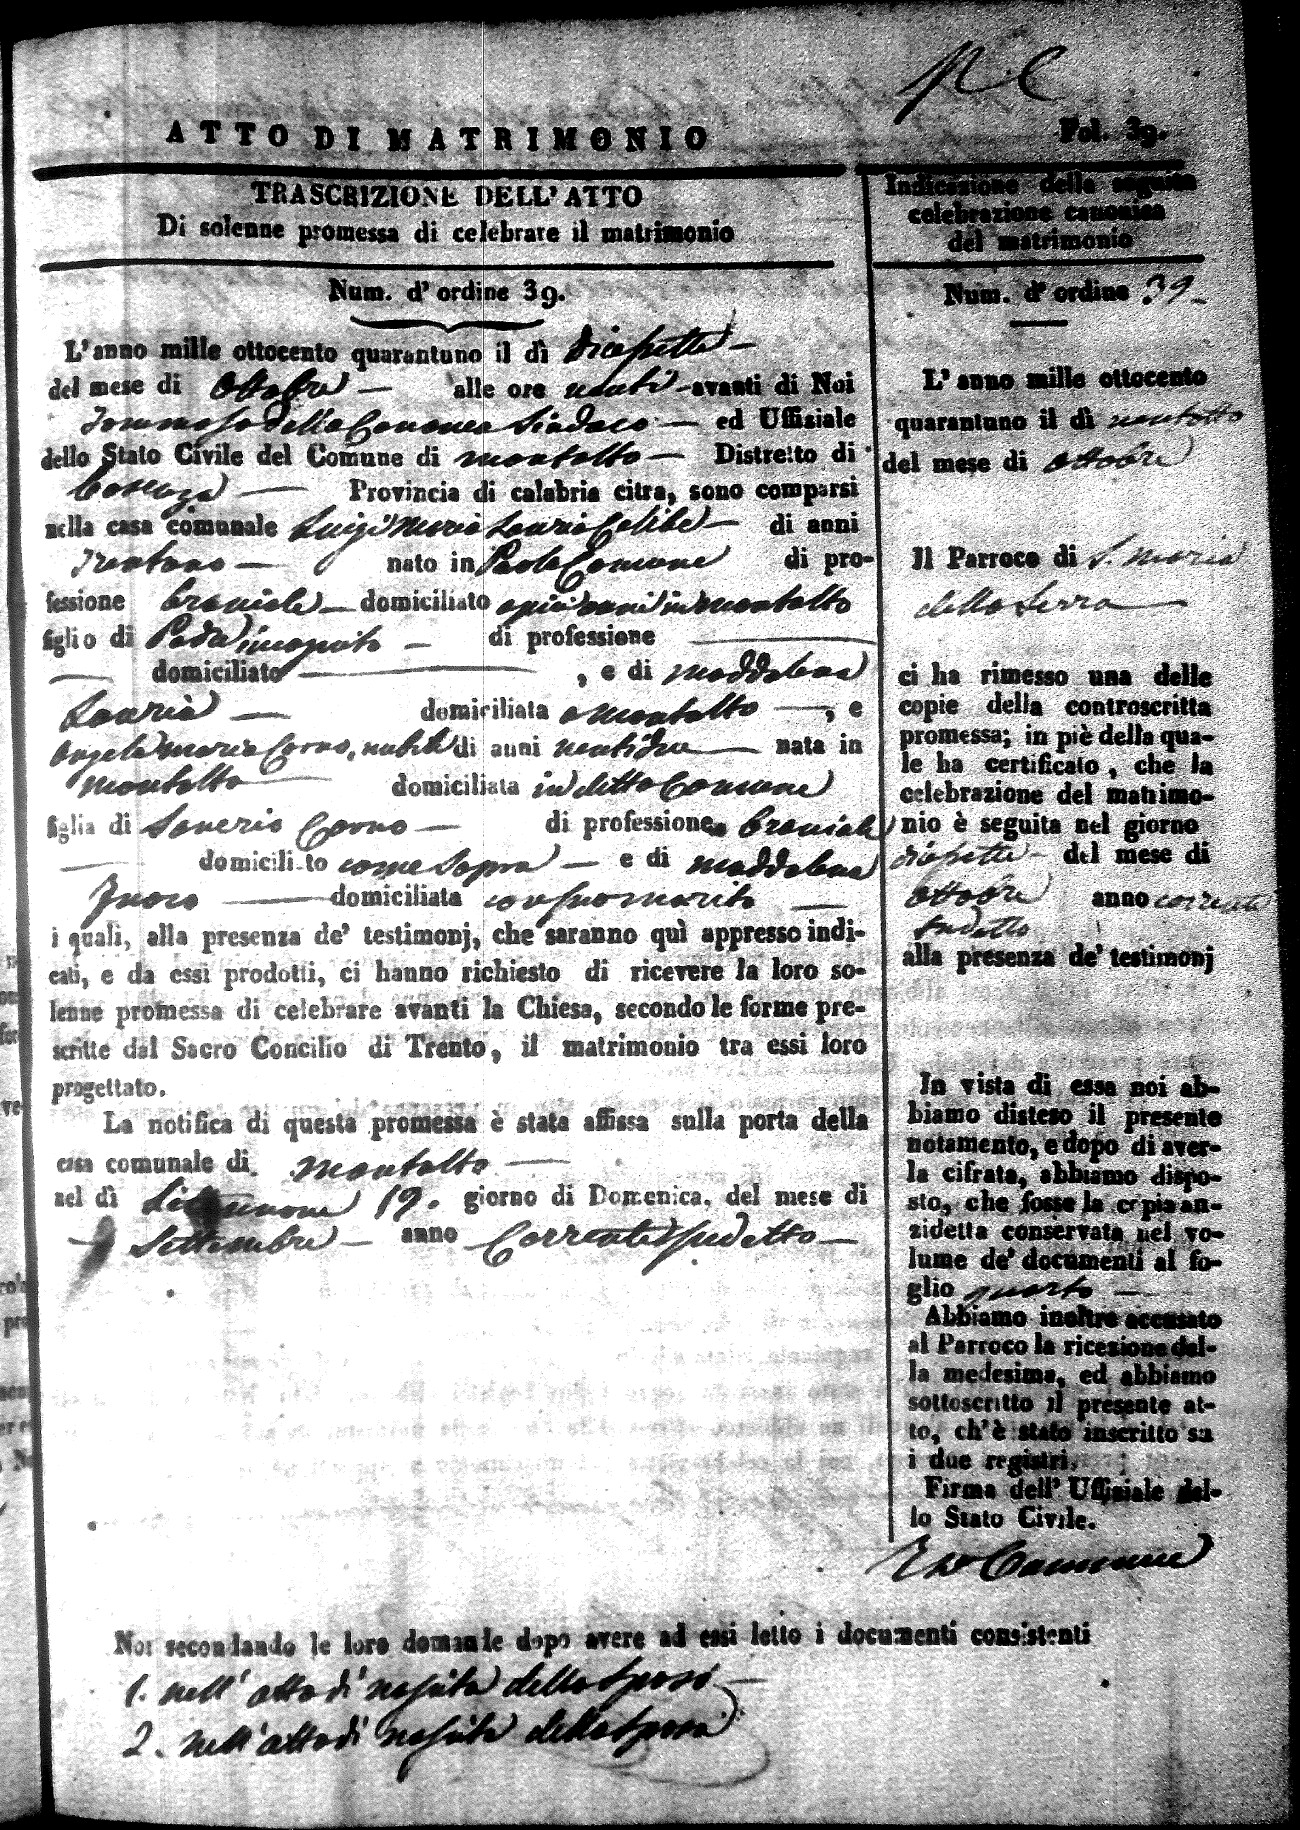 ATTO DI MATRIMONIO
Fol. 39.
TRASCRIZIONE DELL'ATTO
Di solenne promessa di celebrare il matrimonio
Num. d'ordine 39.
L'anno mille ottocento quarantuno il dì diciasette
del mese di Ottobre alle ore venti avanti di Noi
Tommaso Della Cananea Sindaco ed Uffiziale
dello Stato Civile del Comune di Montalto Distretto di
Cosenza Provincia di calabria citra, sono comparsi
nella casa comunale Luigi Maria Lauria Celibe di anni
Trentuno nato in Paola Comune di pro-
fessione braciale domiciliato in Montalto
figlio di Padre incognito di professione
domiciliato , e di Maddalena
Lauria domiciliata a Montalto , e
Angela Maria Corno, nubile di anni ventidue nata in
Montalto domiciliata in detto Comune
figlia di Saverio Corno di professione braciale
domiciliato come sopra e di Maddalena
domiciliata con suo marito
i quali, alla presenza de' testimonj, che saranno quì appresso indi-
cati, e da essi prodotti, ci hanno richiesto di ricevere la loro so-
lenne promessa di celebrare avanti la Chiesa, secondo le forme pre-
scritte dal Sacro Concilio di Trento, il matrimonio tra essi loro
progettato.
La notifica di questa promessa è stata affissa sulla porta della
casa comunale di Montalto
nel dì Diciannove 19. giorno di Domenica, del mese di
Settembre anno Corrente sudetto
Indicazione della seguita
celebrazione canonica
del matrimonio
Num. d'ordine 39
L'anno mille ottocento
quarantuno il dì ventotto
del mese di ottobre
Il Parroco di S. Maria
della Serra
ci ha rimesso una delle
copie della controscritta
promessa; in piè della qua-
le ha certificato, che la
celebrazione del matrimo-
nio è seguita nel giorno
diciasette del mese di
ottobre anno corrente
sudetto
alla presenza de' testimonj
In vista di essa noi ab-
biamo disteso il presente
notamento, e dopo di aver-
la cifrata, abbiamo dispo-
sto, che fosse la copia an-
zidetta conservata nel vo-
lume de' documenti al fo-
glio quarto
Abbiamo inoltre accusato
al Parroco la ricezione del-
la medesima, ed abbiamo
sottoscritto il presente at-
to, ch'è stato inscritto su
i due registri.
Firma dell' Uffiziale del-
lo Stato Civile.
Noi secondando le loro domande dopo avere ad essi letto i documenti consistenti
1. nell'atto di nascita dello sposo
2. nell'atto di nascita della sposa